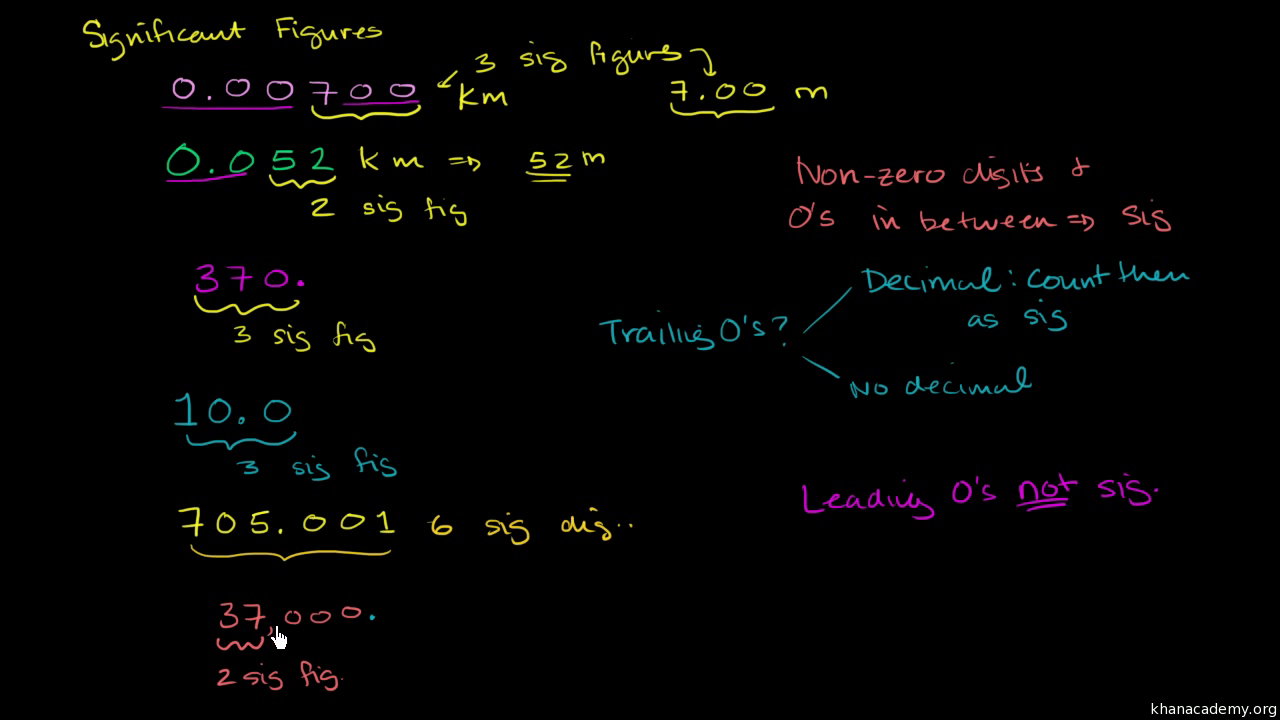 Significant Figures
3 sig figure
0.00700 km
7.00 m
0.052 km ⇒ 52 m
2 sig fig
Non-zero digits &
0's in between ⇒ sig
370.
3 sig fig
Trailing 0's?
Decimal: count them
as sig
No decimal
10.0
3 sig fig
Leading 0's not sig.
705.001 6 sig dig..
37,000.
2 sig fig.
khanacademy.org